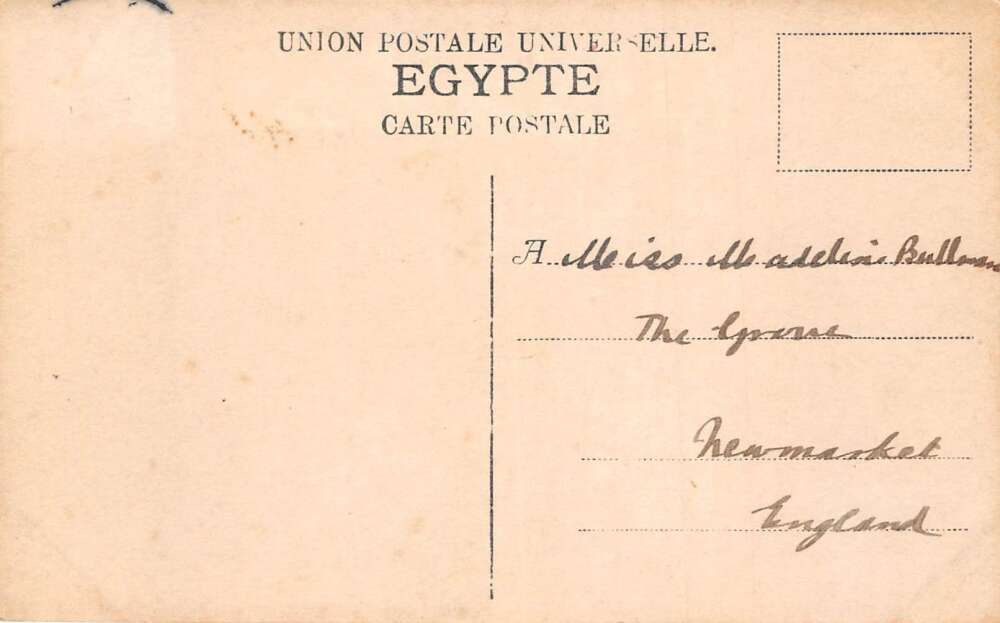 UNION POSTALE UNIVERSELLE.
EGYPTE
CARTE POSTALE
A Miss Madeline Bullman
The Grove
Newmarket
England